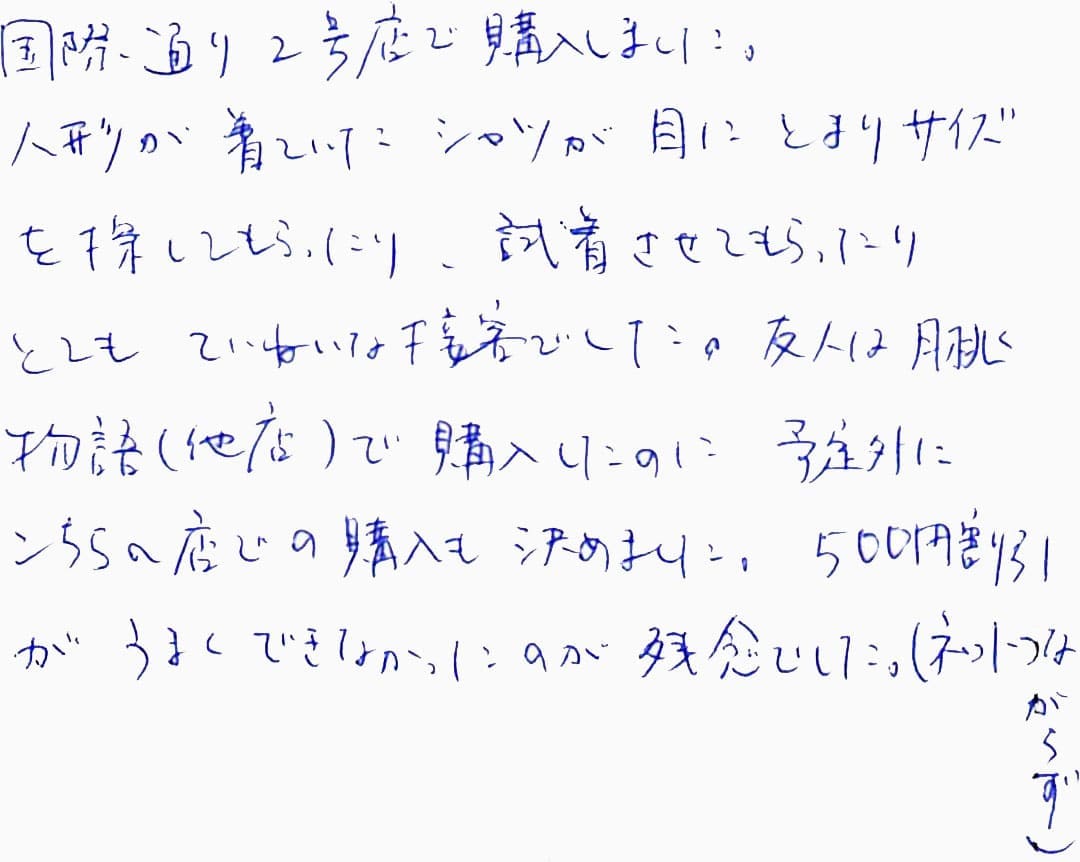 国際通り2号店で購入しました。
人形が着ていたシャツが目にとまりサイズ
を探してもらったり、試着させてもらったり
とてもていねいな接客でした。友人は月桃
物語(他店)で購入したのに予定外に
こちらの店での購入も決めました。500円割引
がうまくできなかったのが残念でした。(ネットつな
がらず)